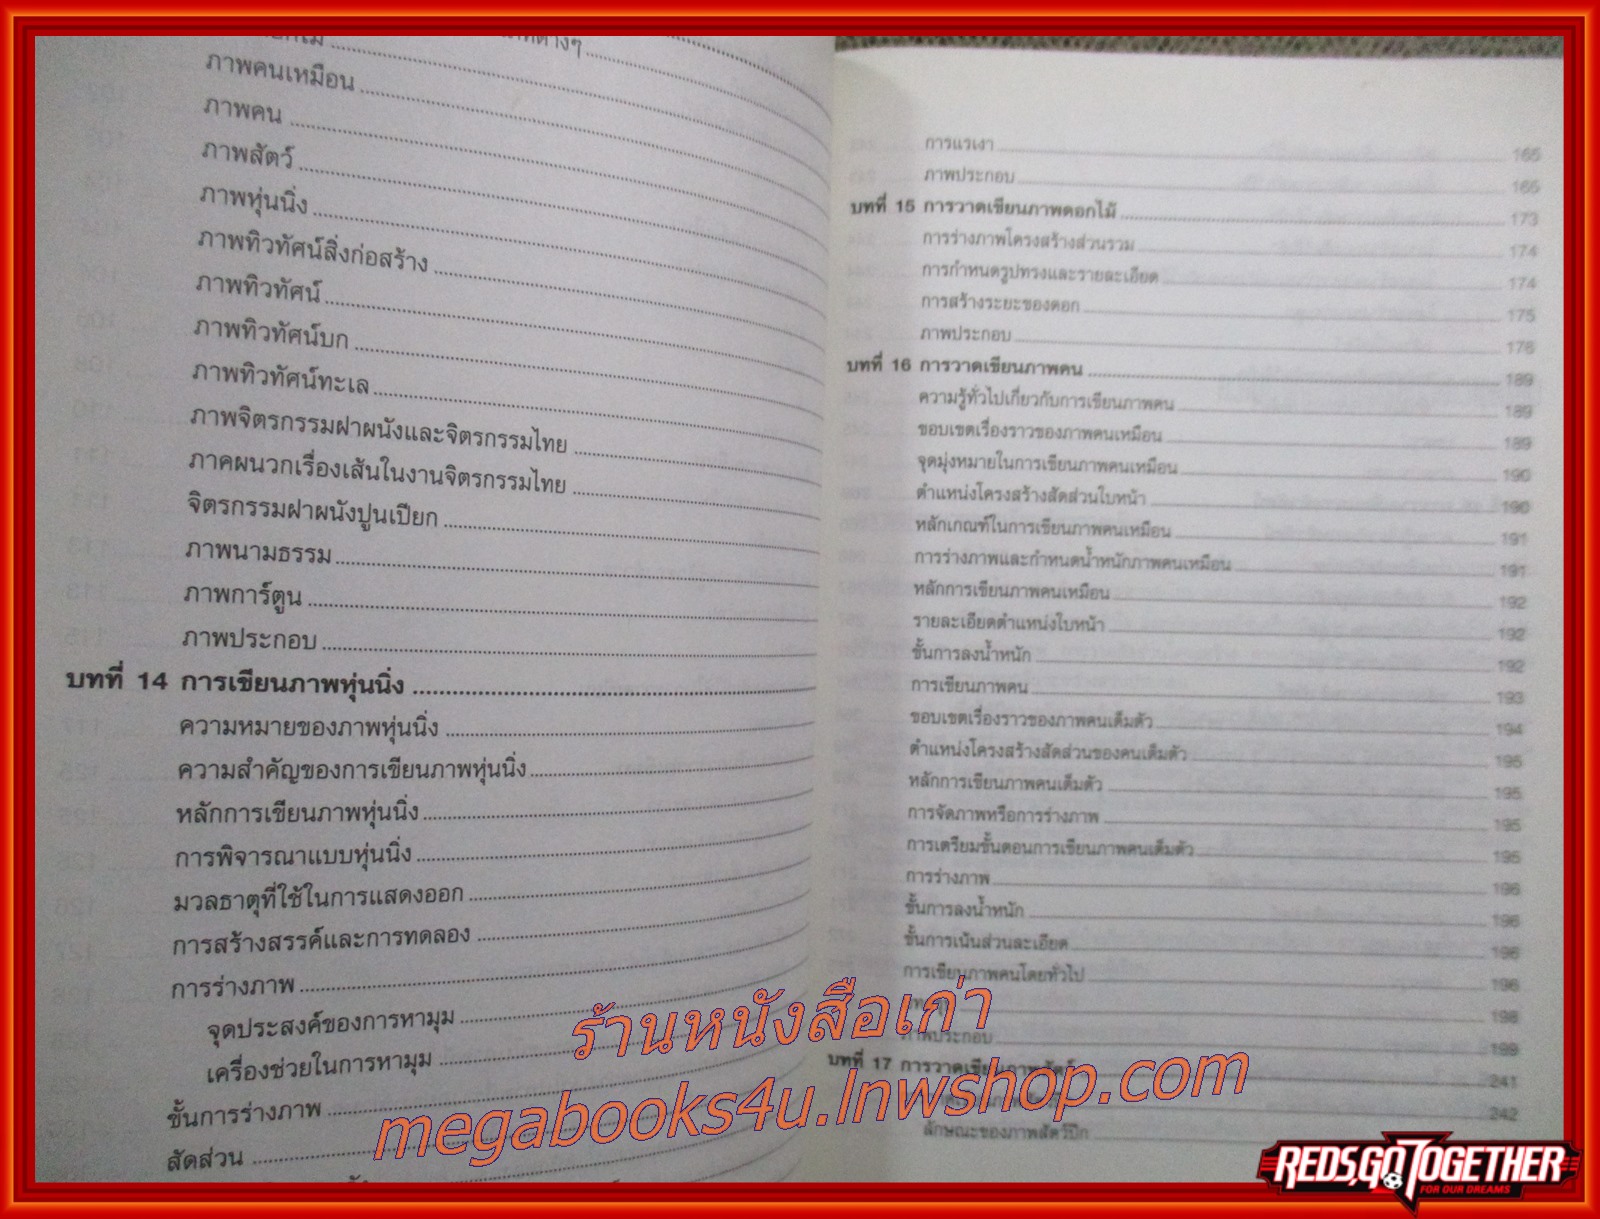 ภาพคนเหมือน
ภาพคน
ภาพสัตว์
ภาพหุ่นนิ่ง
ภาพทิวทัศน์สิ่งก่อสร้าง
ภาพทิวทัศน์
ภาพทิวทัศน์บก
ภาพทิวทัศน์ทะเล
ภาพจิตรกรรมฝาผนังและจิตรกรรมไทย
ภาคผนวกเรื่องเส้นในงานจิตรกรรมไทย
จิตรกรรมฝาผนังปูนเปียก
ภาพนามธรรม
ภาพการ์ตูน
ภาพประกอบ
บทที่ 14 การเขียนภาพหุ่นนิ่ง
ความหมายของภาพหุ่นนิ่ง
ความสำคัญของการเขียนภาพหุ่นนิ่ง
หลักการเขียนภาพหุ่นนิ่ง
การพิจารณาแบบหุ่นนิ่ง
มวลธาตุที่ใช้ในการแสดงออก
การสร้างสรรค์และการทดลอง
การร่างภาพ
จุดประสงค์ของการหามุม
เครื่องช่วยในการหามุม
ขั้นการร่างภาพ
สัดส่วน
การแรเงา 165
ภาพประกอบ 165
บทที่ 15 การวาดเขียนภาพดอกไม้ 173
การร่างภาพโครงสร้างส่วนรวม 174
การกำหนดรูปทรงและรายละเอียด 174
การสร้างระยะของดอก 175
ภาพประกอบ 176
บทที่ 16 การวาดเขียนภาพคน 189
ความรู้ทั่วไปเกี่ยวกับการเขียนภาพคน 189
ขอบเขตเรื่องราวของภาพคนเหมือน 189
จุดมุ่งหมายในการเขียนภาพคนเหมือน 190
ตำแหน่งโครงสร้างสัดส่วนใบหน้า 190
หลักเกณฑ์ในการเขียนภาพคนเหมือน 191
การร่างภาพและกำหนดน้ำหนักภาพคนเหมือน 191
หลักการเขียนภาพคนเหมือน 192
รายละเอียดตำแหน่งใบหน้า 192
ขั้นการลงน้ำหนัก 192
การเขียนภาพคน 193
ขอบเขตเรื่องราวของภาพคนเต็มตัว 194
ตำแหน่งโครงสร้างสัดส่วนของคนเต็มตัว 195
หลักการเขียนภาพคนเต็มตัว 195
การจัดภาพหรือการร่างภาพ 195
การเตรียมขั้นตอนการเขียนภาพคนเต็มตัว 195
การร่างภาพ 196
ขั้นการลงน้ำหนัก 196
ขั้นการเน้นส่วนละเอียด 196
การเขียนภาพคนโดยทั่วไป 196
198
ภาพประกอบ 199
บทที่ 17 การวาดเขียนภาพสัตว์ 241
242
ลักษณะของภาพสัตว์ปีก
ร้านหนังสือเก่า
megabooks4u.lnwshop.com
REDS,GO TOGETHER
FOR OUR DREAMS